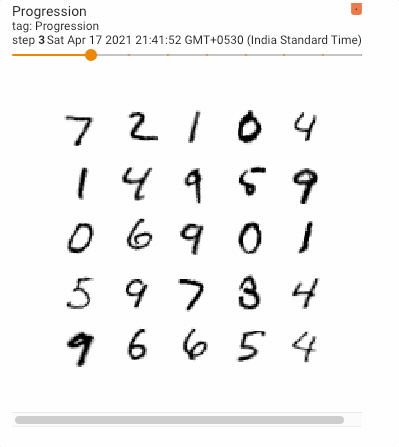 Progression
tag: Progression
step 3 Sat Apr 17 2021 21:41:52 GMT+0530 (India Standard Time)
7 2 1 0 4
1 4 9 5 9
0 6 9 0 1
5 9 7 3 4
9 6 6 5 4